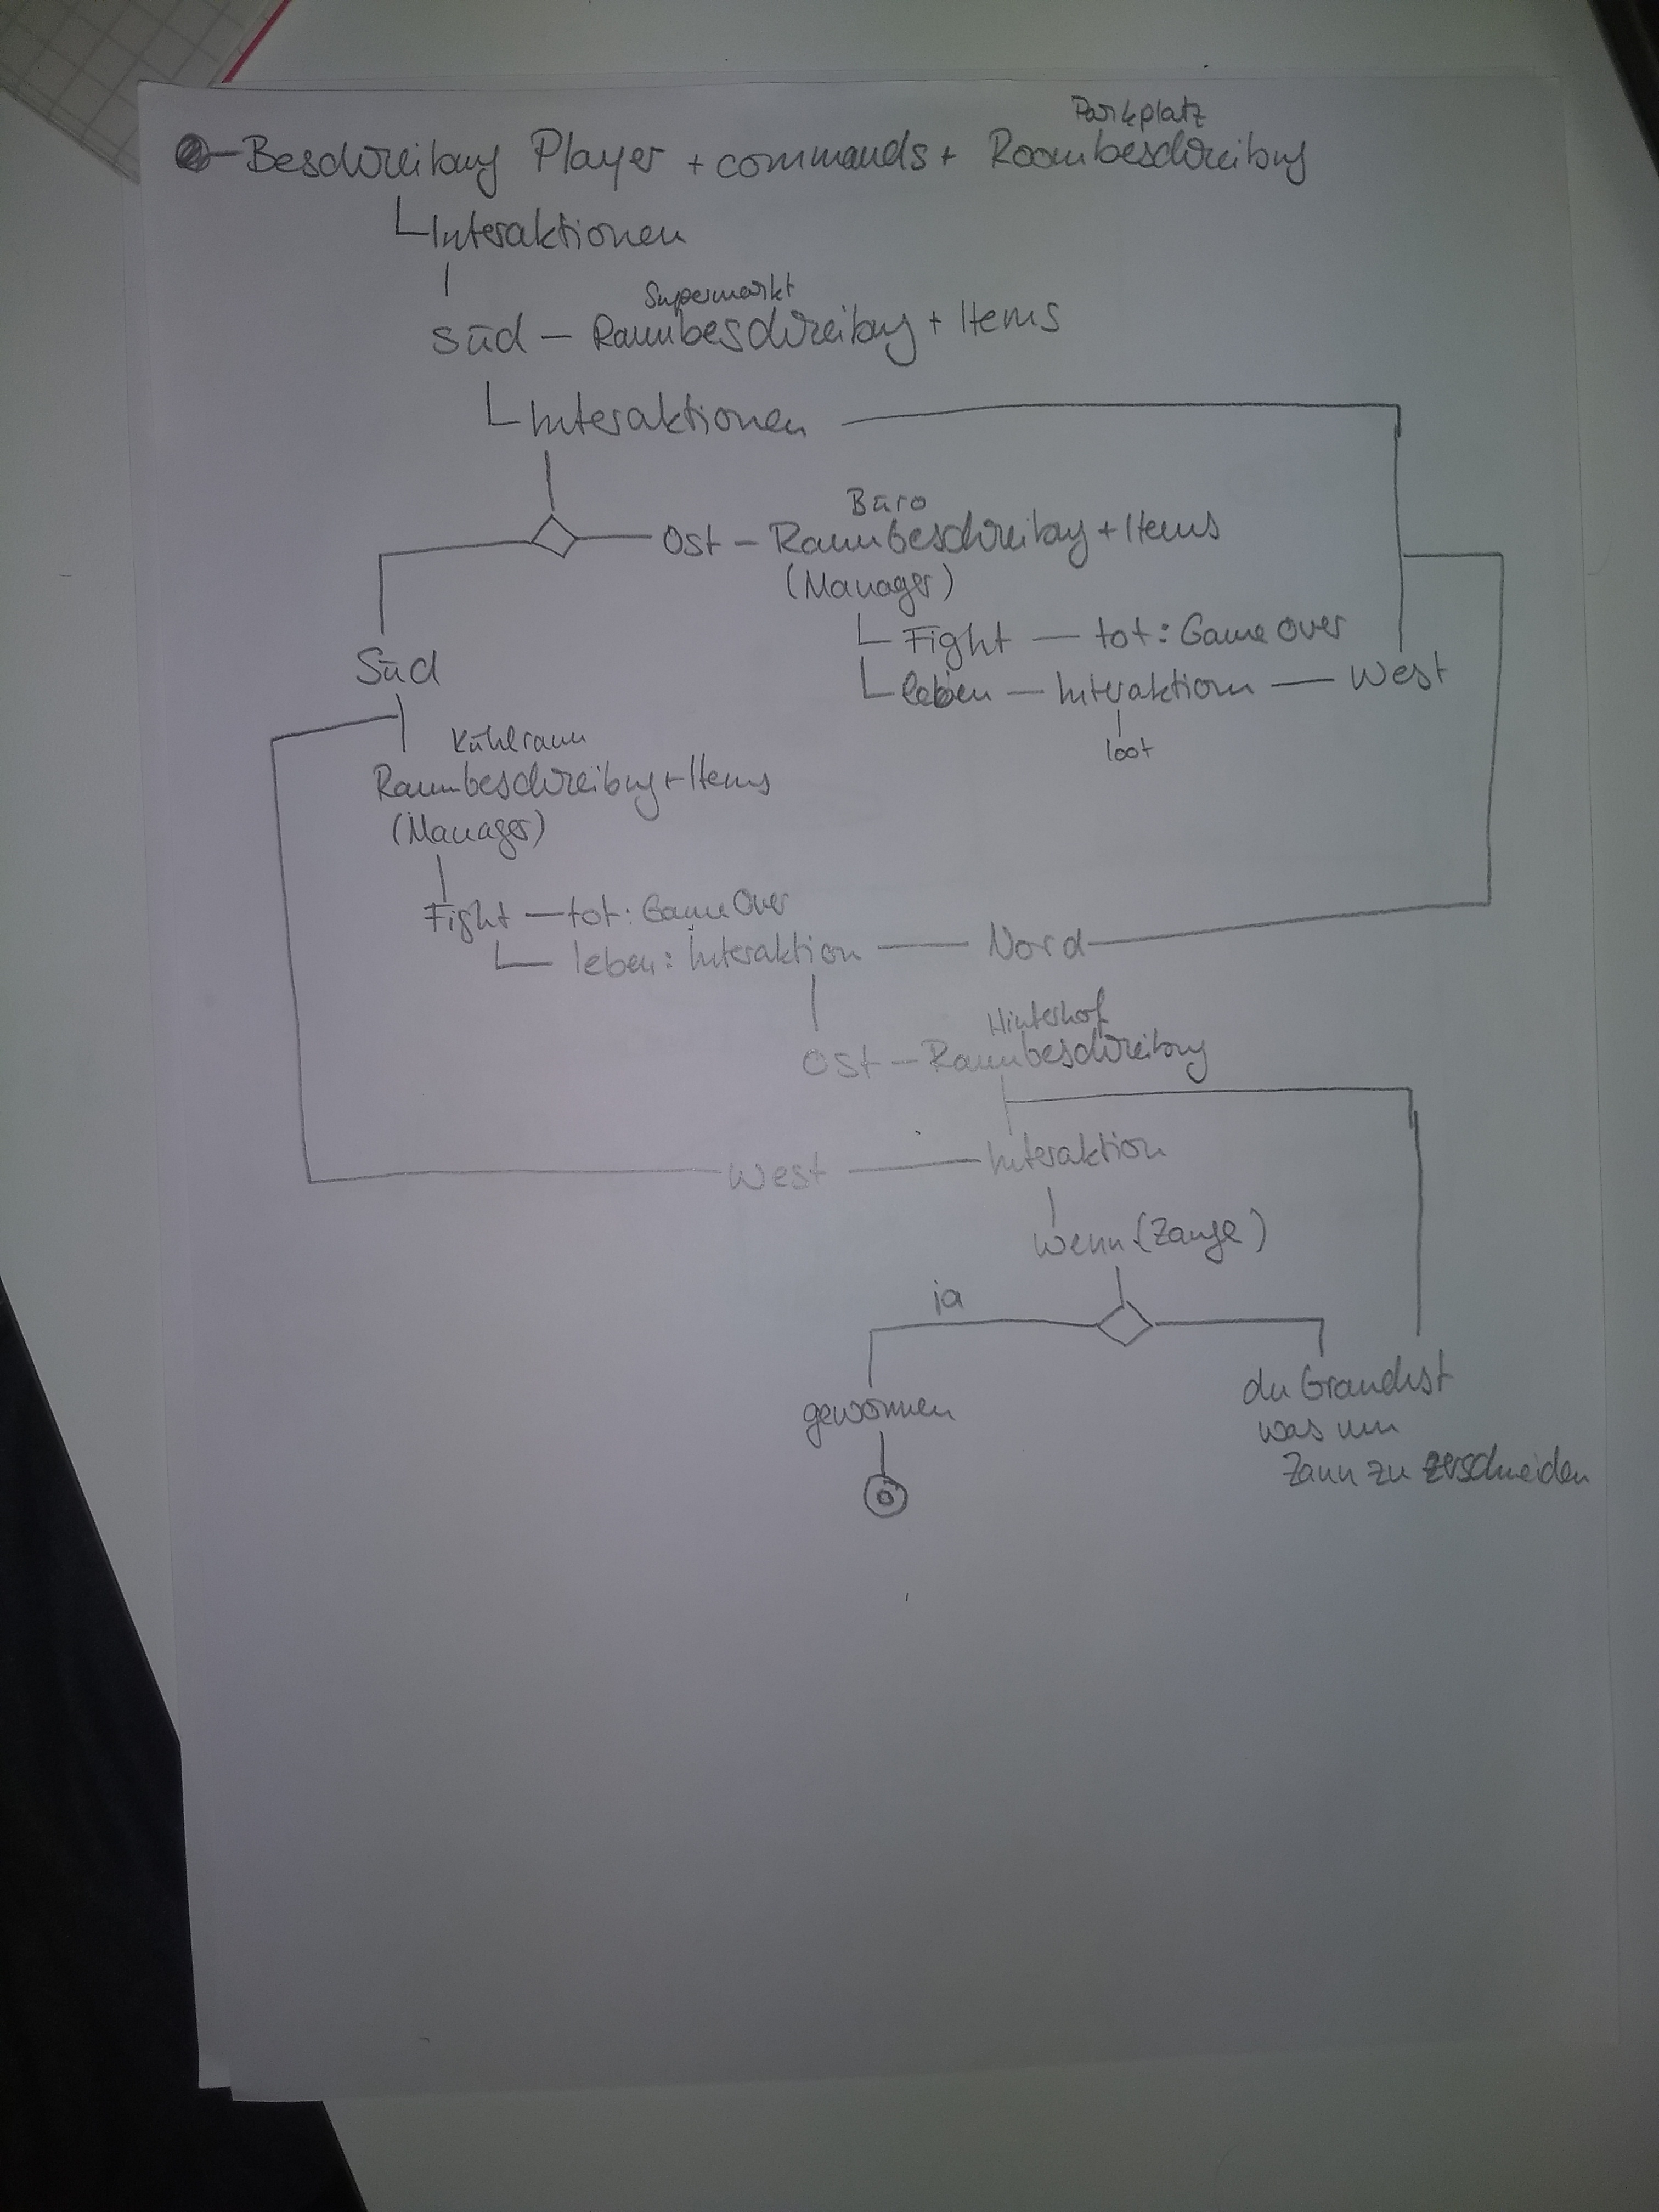 Parkplatz
Beschreibung Player + commands + Roombeschreibung
Interaktionen
Supermarkt
Süd – Raumbeschreibung + Items
Interaktionen
Büro
Ost – Raumbeschreibung + Items
(Manager)
Fight – tot: Game Over
leben – Interaktion – West
loot
Süd
Kühlraum
Raumbeschreibung + Items
(Manager)
Fight – tot: Game Over
leben: Interaktion – Nord
Hinterhof
Ost – Raumbeschreibung
West – Interaktion
wenn (Zange)
ja
gewonnen
du brauchst
was um
Zaun zu zerschneiden